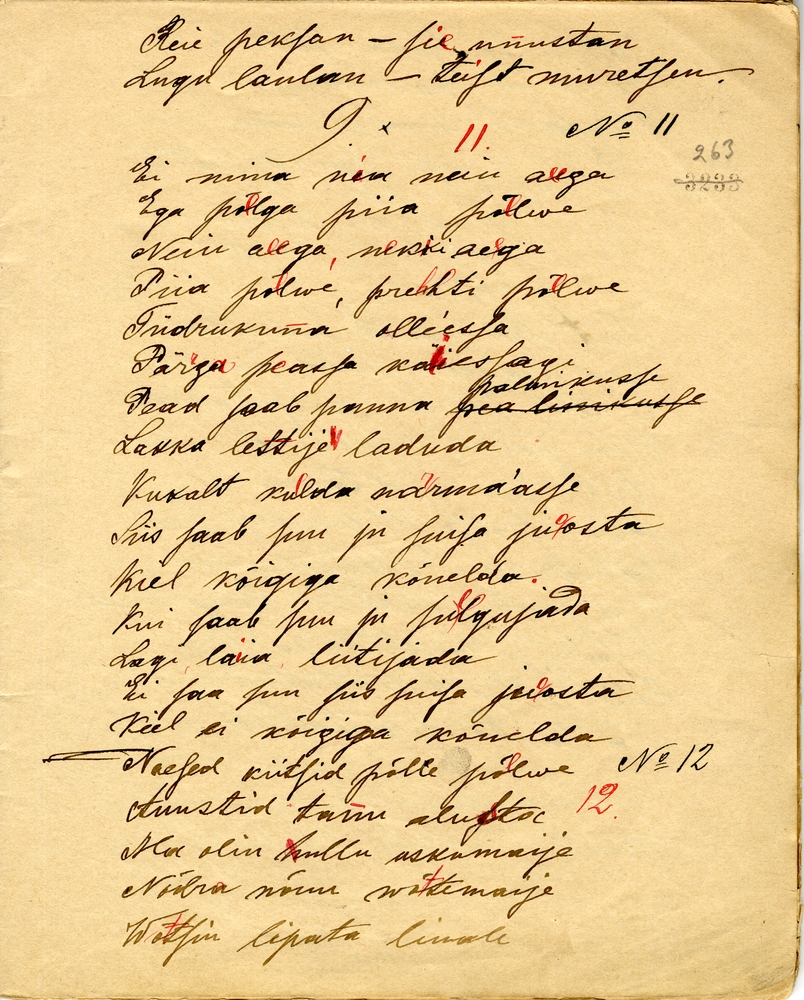 Reie peksan – sie unustan
Lugu laulan – teist muretsen.
9. x 11. No 11
263
3233
Ei mina näa nein aega
Ega põlga piia põlwe
Nein aega, nekki aega
Piia põlwe, prehti põlwe
Tüdrukuna olleessa
Pärga peassa käiessagi
Pead saab panna pea linikusse palmikusse
Lakka lettije laduda
Kukalt kulda narmaasse
Siis saab suu ju suisa juosta
Kiel kõigiga kõnelda.
Kui saab suu ju sulgujada
Lagi laia liitijada
Ei saa suu siis suisa juosta
Kiel ei kõigiga kõnelda
Naesed kiitsid pölle põlwe No 12
Anustid tanu alusta 12.
Ma olin hullu uskumaije
Nödra nõuu wõttemaije
Wõtsin lipata linale